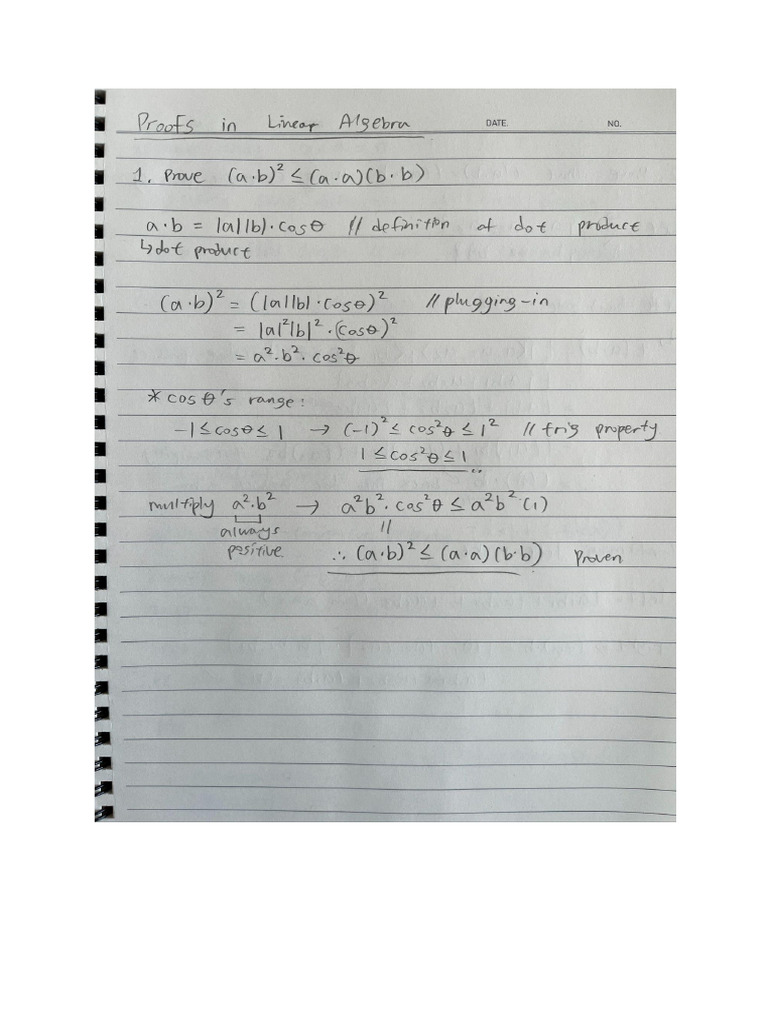 Proofs in Linear Algebra DATE. NO.
1. Prove (a·b)² ≤ (a·a)(b·b)
a·b = |a||b|·cosθ // definition of dot product
↳dot product
(a·b)² = (|a||b|·cosθ)² // plugging-in
= |a|²|b|²·(cosθ)²
= a²·b²·cos²θ
* cosθ's range:
-1 ≤ cosθ ≤ 1 → (-1)² ≤ cos²θ ≤ 1² // trig property
1 ≤ cos²θ ≤ 1
multiply a²·b² → a²b²·cos²θ ≤ a²b²·(1)
always //
positive. ∴ (a·b)² ≤ (a·a)(b·b) Proven